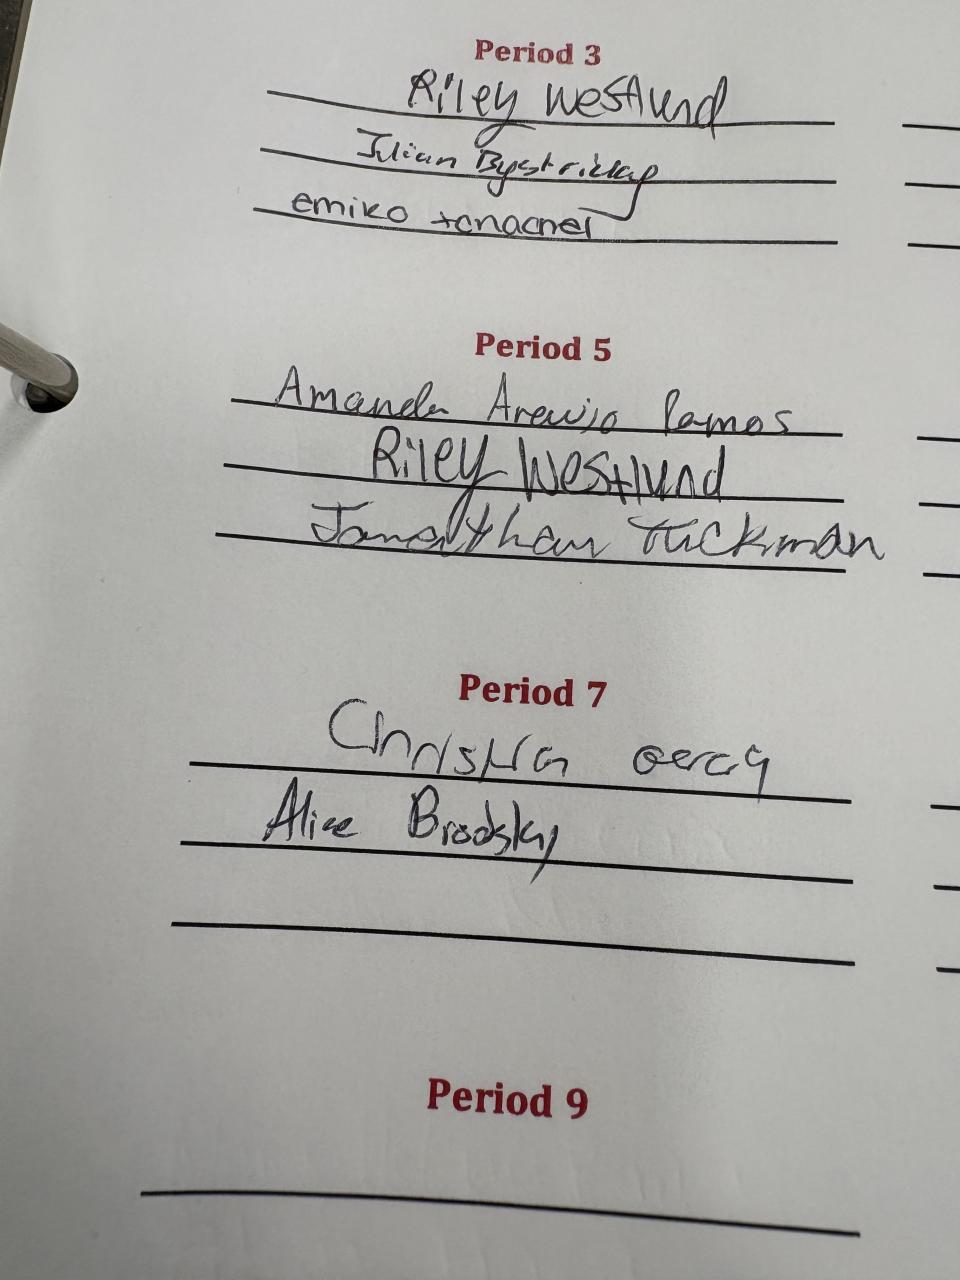 Period 3
Riley Westlund
Julian
emiko
Period 5
Amanda Ramos
Riley Westlund
Jonathan Tuckman
Period 7
Christian
Alice Brodsky
Period 9